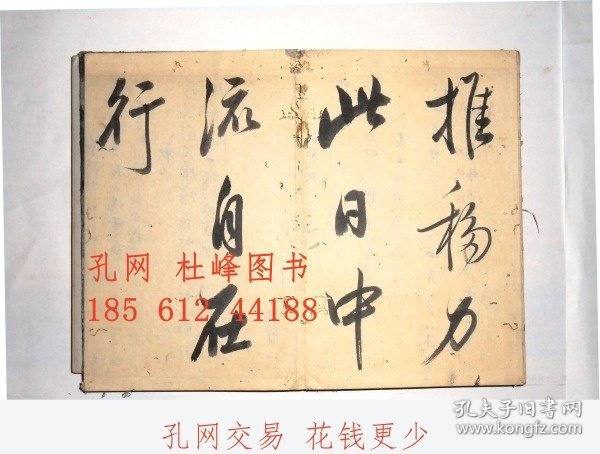 推移力
此日中
流自在
行
孔网 杜峰图书
185 612 44188
孔网交易 花钱更少
孔夫子旧书网
www.kongfz.com